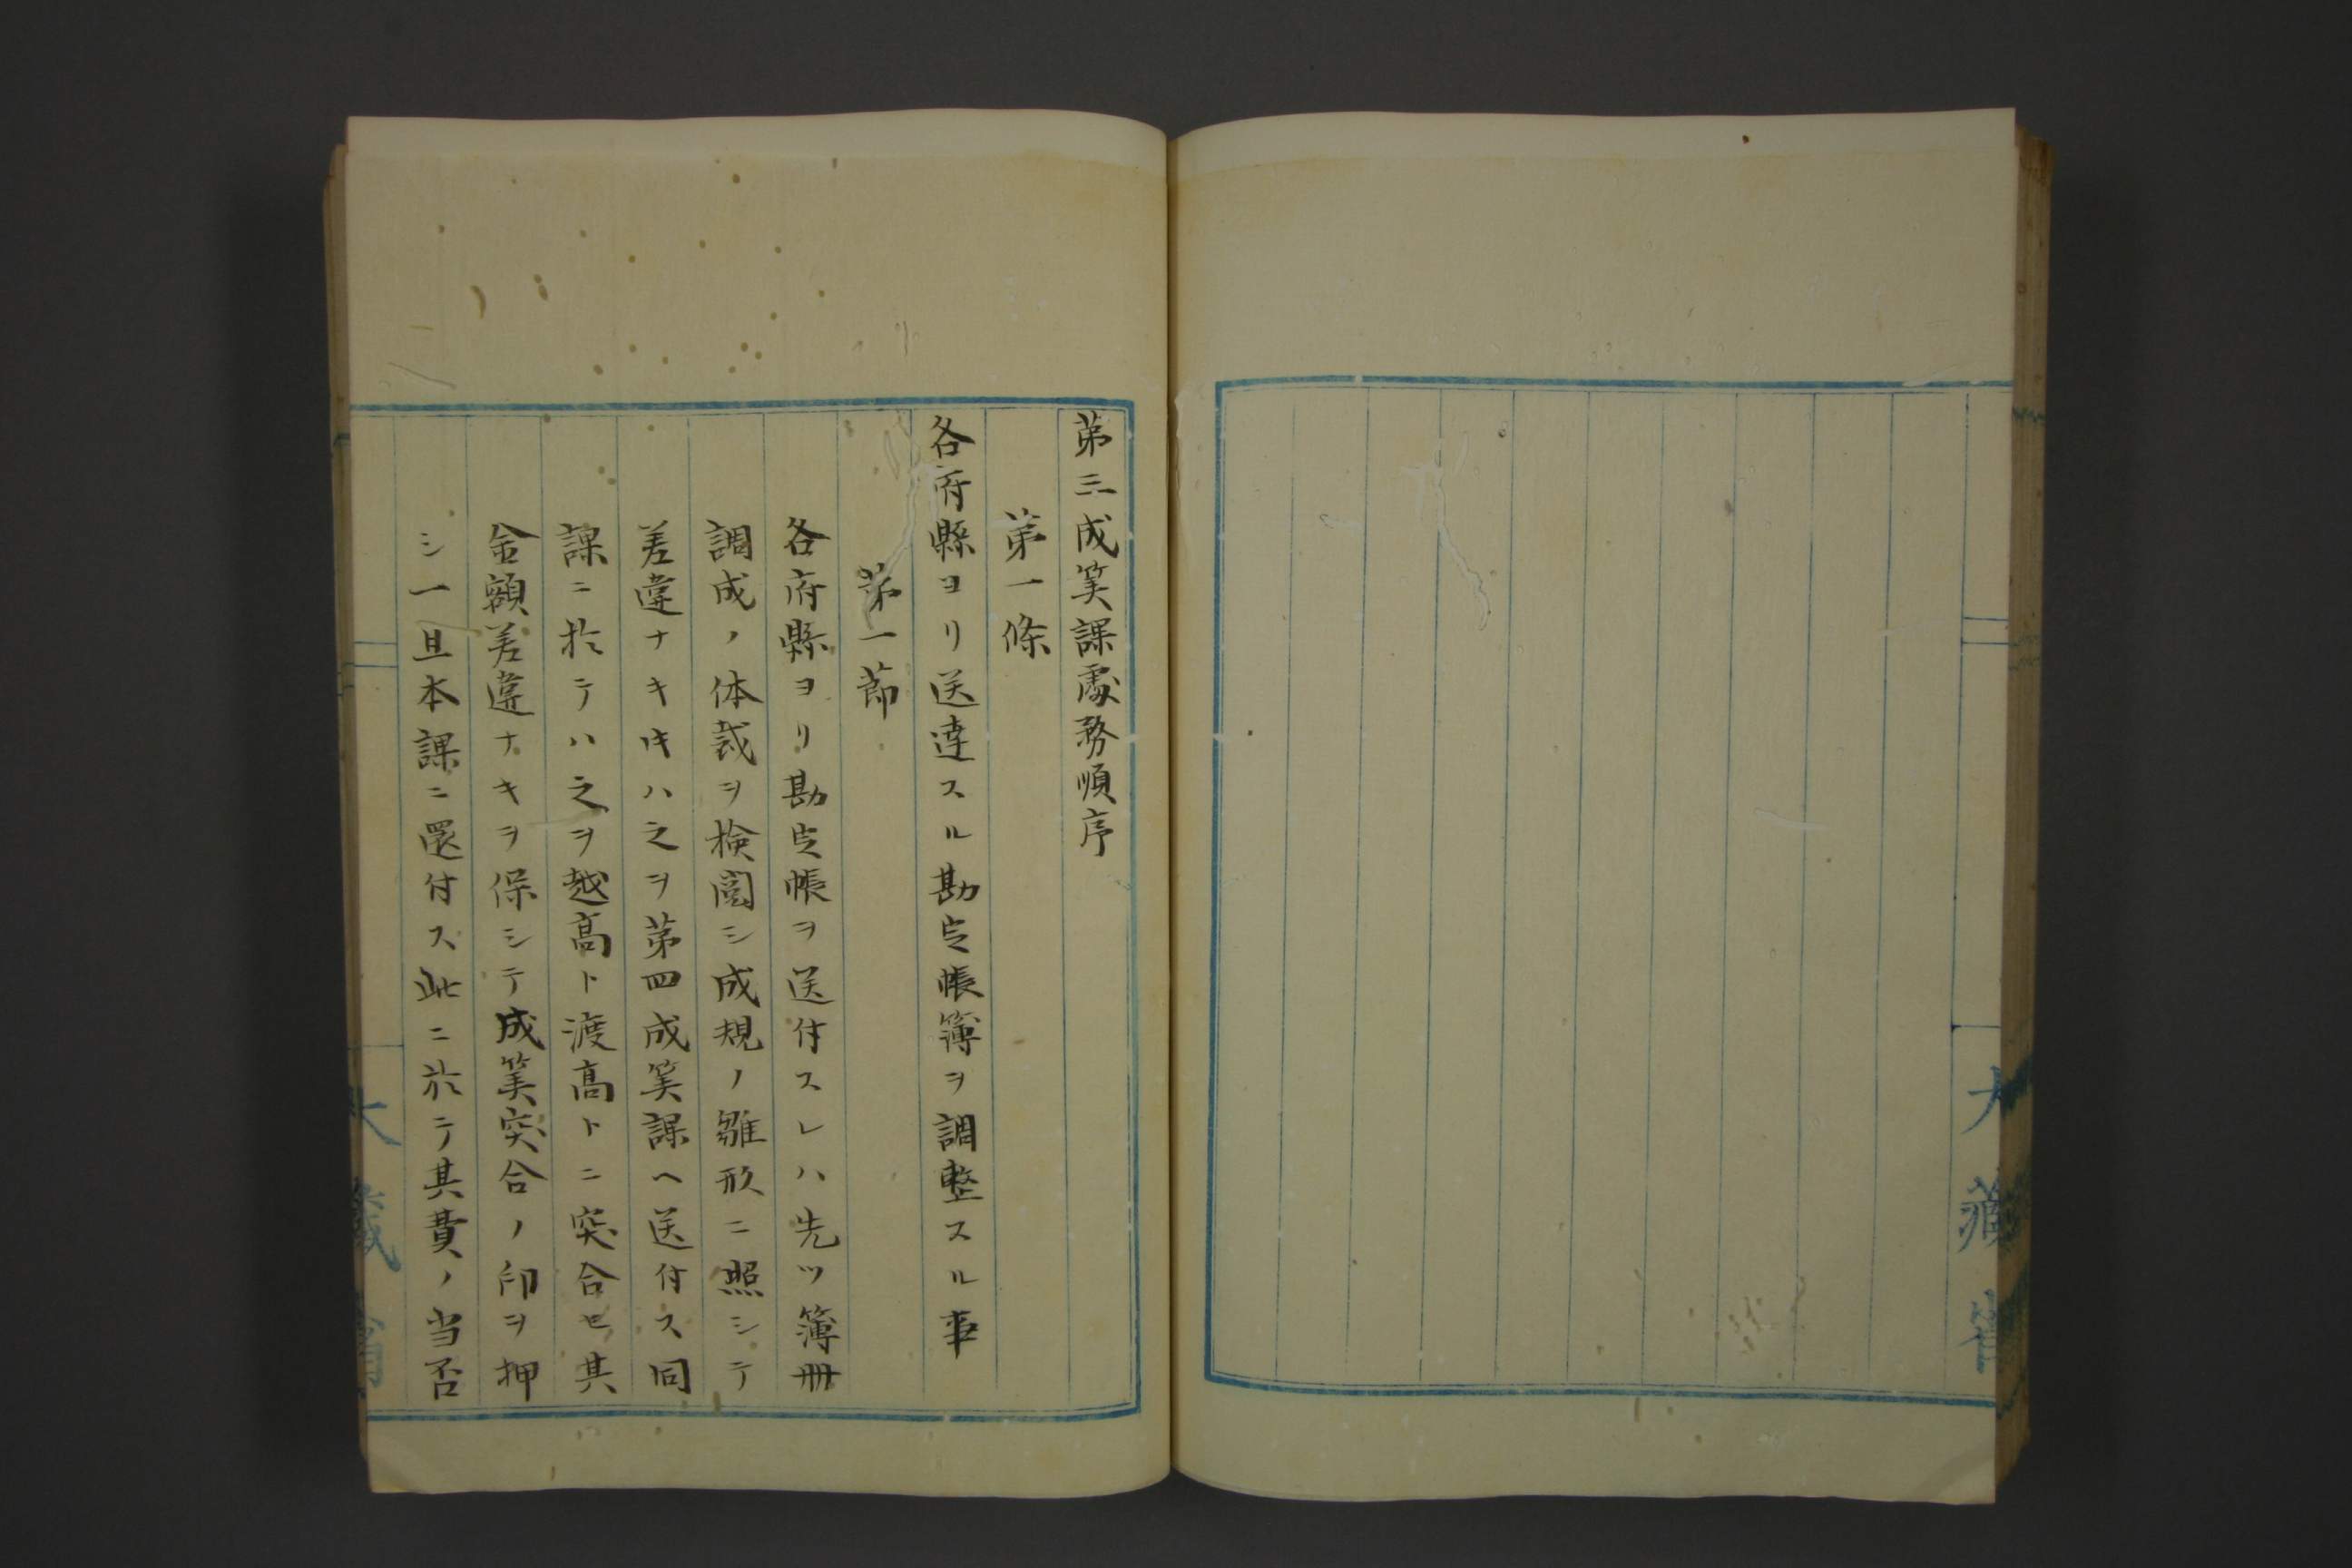 第三成筭課處務順序
第一條
各府縣ヨリ送達スル勘定帳簿ヲ調整スル事
第一節
各府縣ヨリ勘定帳ヲ送付スレハ先ツ簿冊
調成ノ体裁ヲ検閲シ成規ノ雛形ニ照シテ
差違ナキ㕝ハ之ヲ第四成筭課ヘ送付ス同
課ニ於テハ之ヲ越高ト渡高トニ突合セ其
金額差違ナキヲ保シテ成筭突合ノ印ヲ押
シ一旦本課ニ還付ス此ニ於テ其費ノ当否
大藏省
大藏省